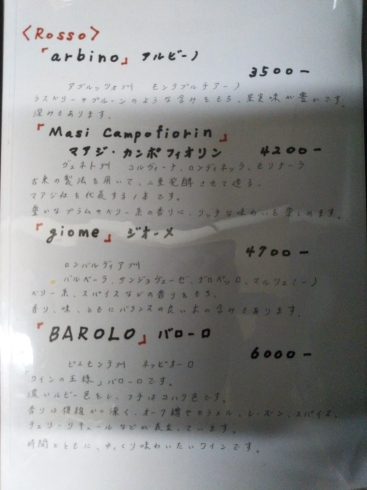 〈Rosso〉
「arbino」 アルビーノ
3500ー
アブルッツォ州 モンテプルチアーノ
ラズベリーやプルーンのような香りをもち、果実味が豊かです。
深みもあります。
「Masi Campofiorin」
マアジ・カンポフィオリン 4200ー
ヴェネト州 コルヴィーナ、ロンディネッラ、モリナーラ
古来の製法を用いて、二重発酵させて造る、
マアジ社を代表する1本です。
豊かなプラムやベリー系の香りに、リッチな味わいを楽しめます。
「giome」 ジオーメ
4700ー
ロンバルディア州
バルベーラ、サンジョヴェーゼ、マルツェミーノ
ベリー系、スパイスなどの香りをもち、
香り、味、ともにバランスの良い木の香もあります。
「BAROLO」 バローロ
6000ー
ピエモンテ州 ネッビオーロ
「ワインの王様」バローロです。
濃いルビー色をし、フチはコハク色です。
香りは複雑かつ深く、オーク樽やカラメル、レーズン、スパイス、
チェリーリキュールなどが表立っています。
時間とともに、ゆっくり味わいたいワインです。